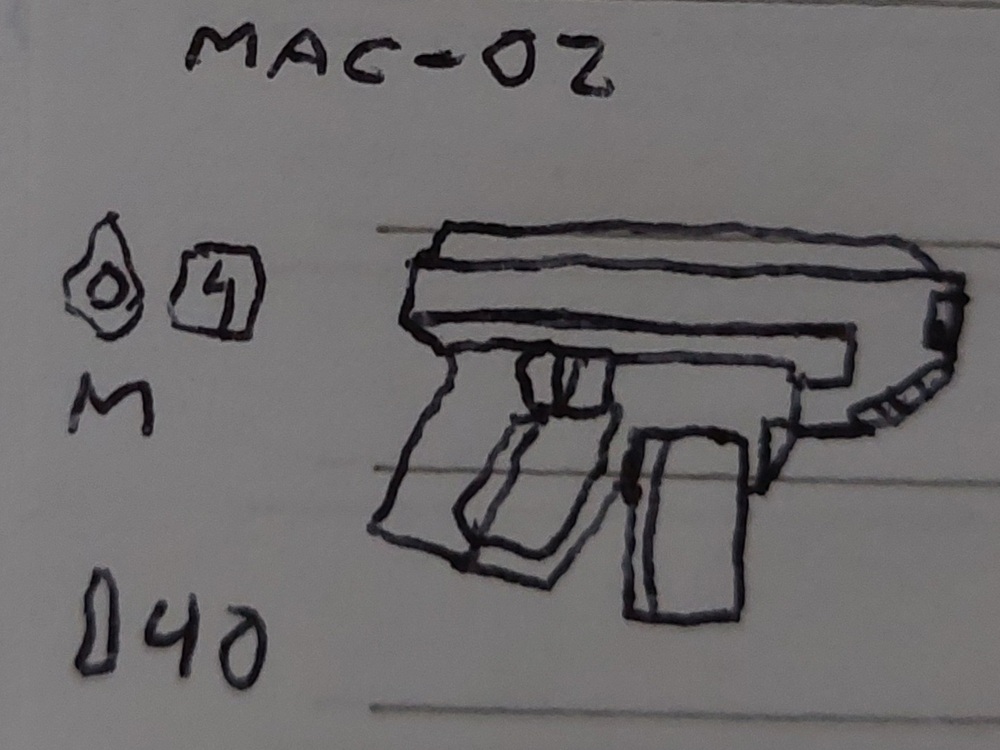 MAC-02
0 4
M
40